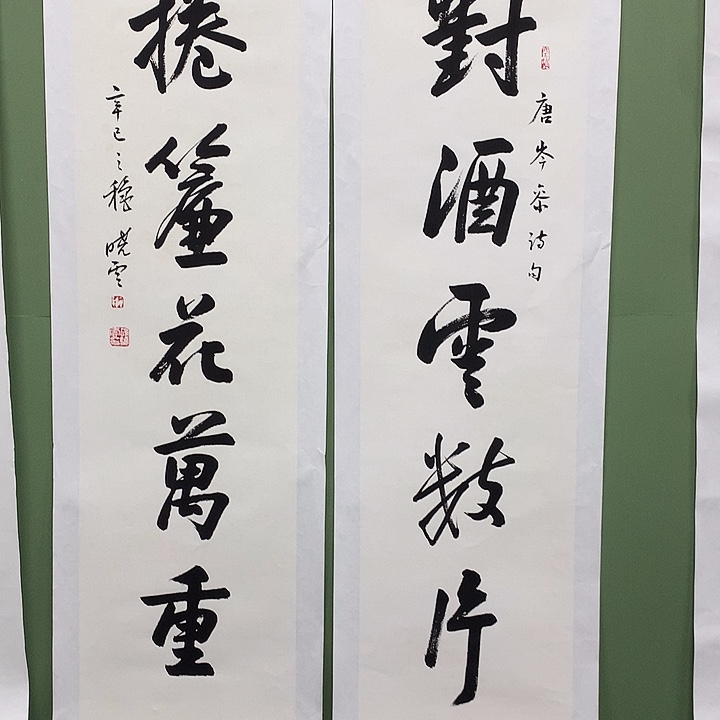 對酒雲數片
唐岑參詩句
捲簾花萬重
辛巳之穐 曉雲